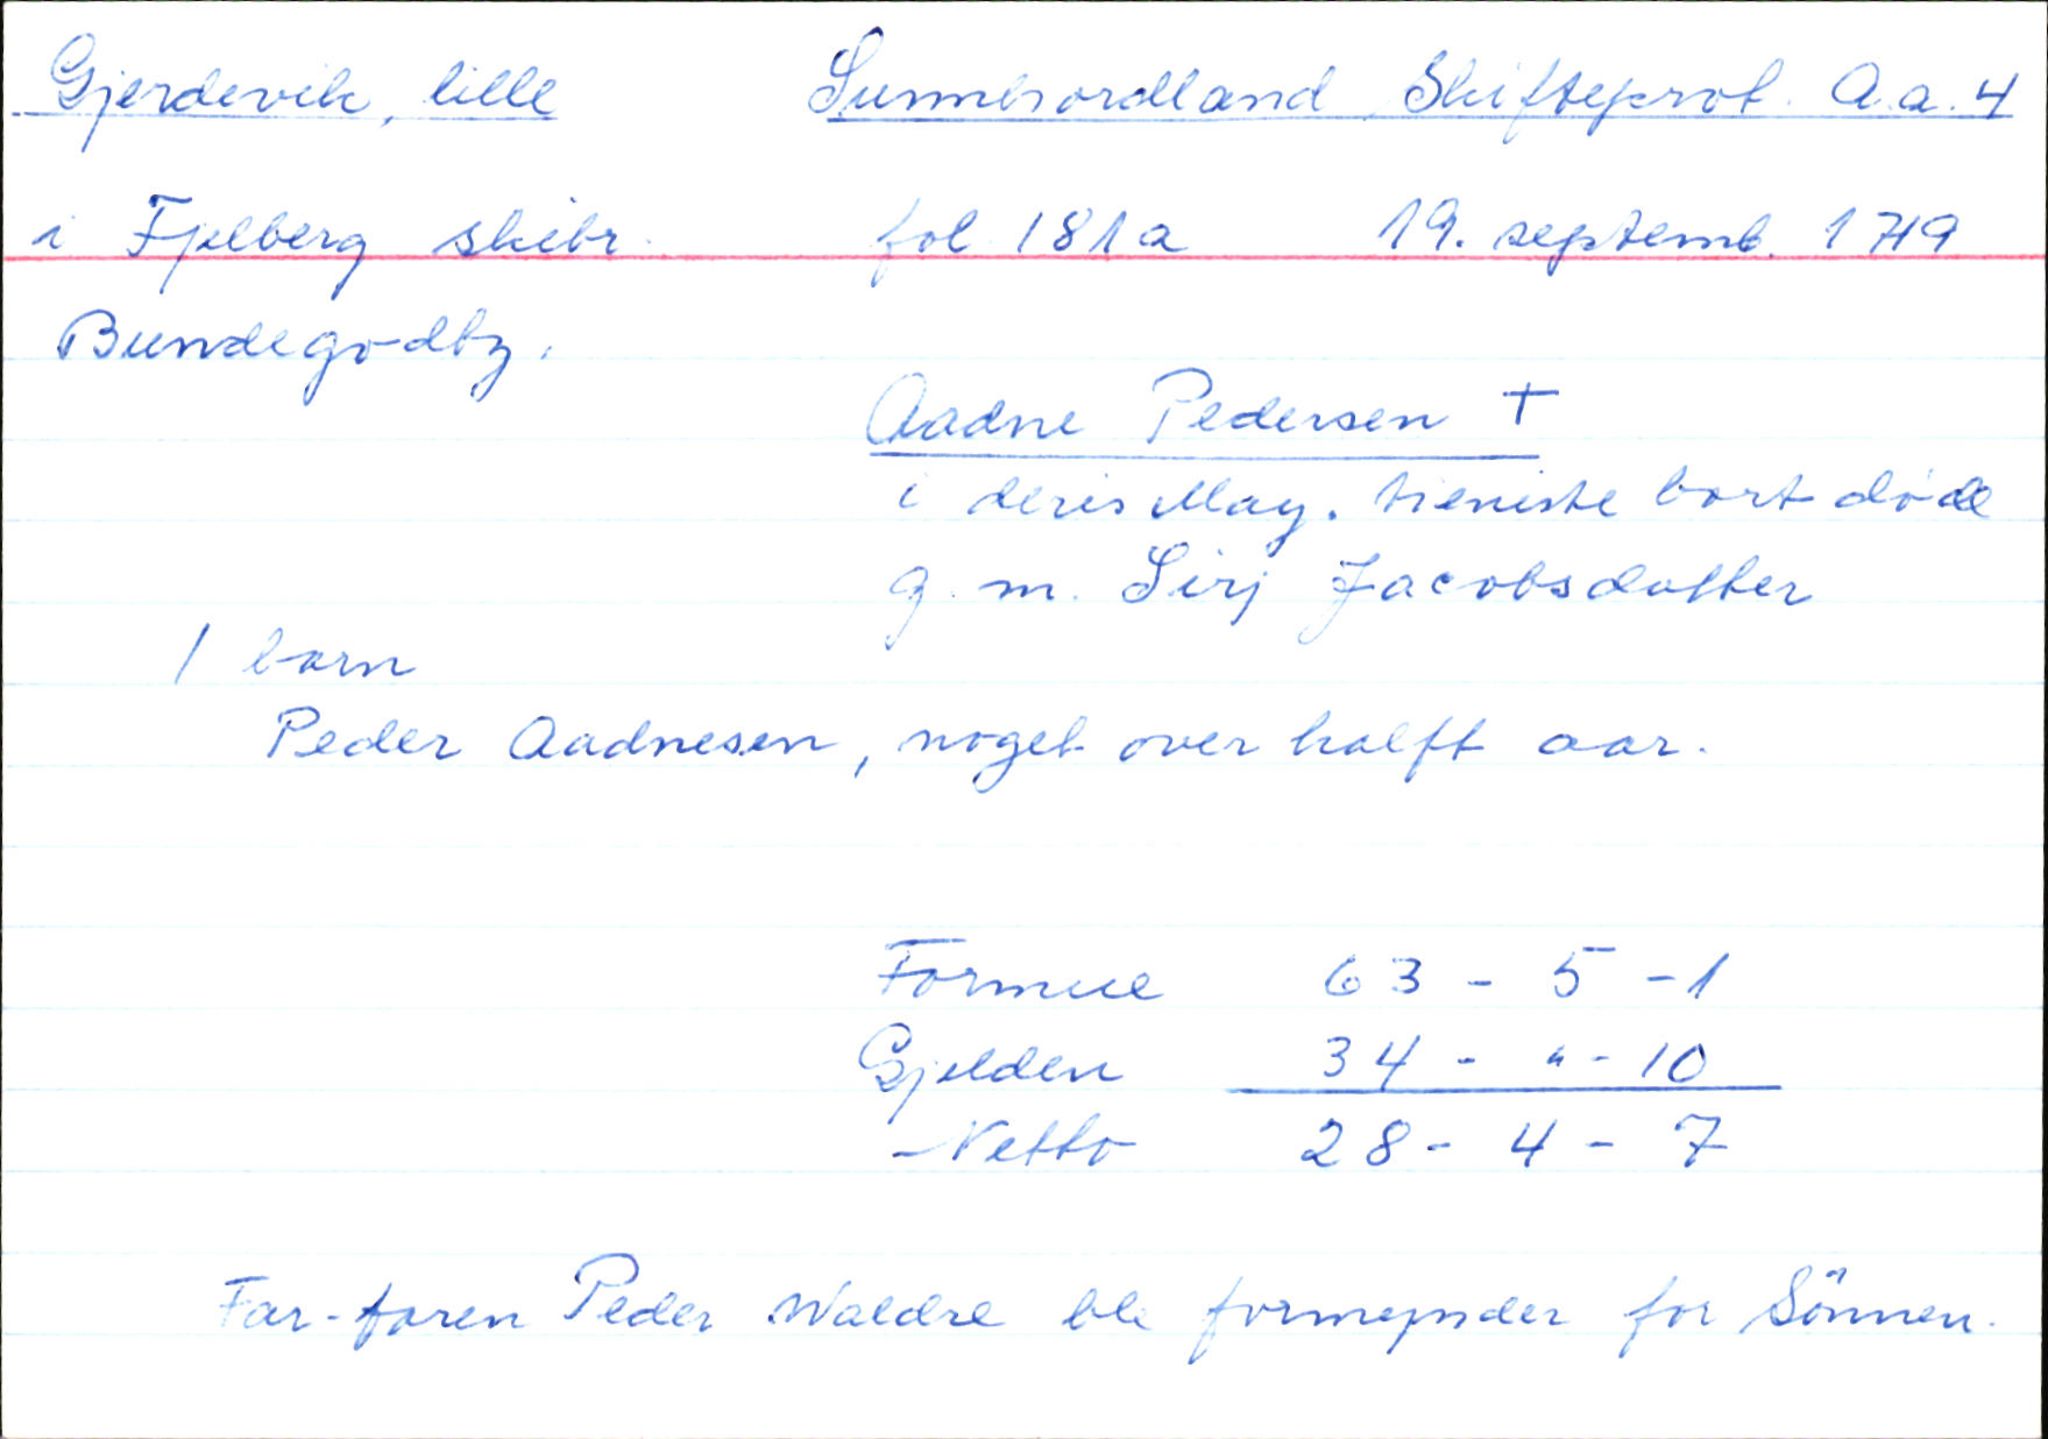 Gjerdevik, lille Sunnhordland Skifteprot. A.a.4
i Fjelberg skibr. fol 181a 19. septemb. 1719
Bundegodtz.
Aadne Pedersen †
i deris May. tieniste bort døde
g. m. Sirj Jacobsdatter
1 barn
Peder Aadnesen, noget over halft aar.
Formue 63 - 5 - 1
Gjelden 34 - " - 10
Netto 28 - 4 - 7
Far-faren Peder Waldre ble formynder for Sönnen.